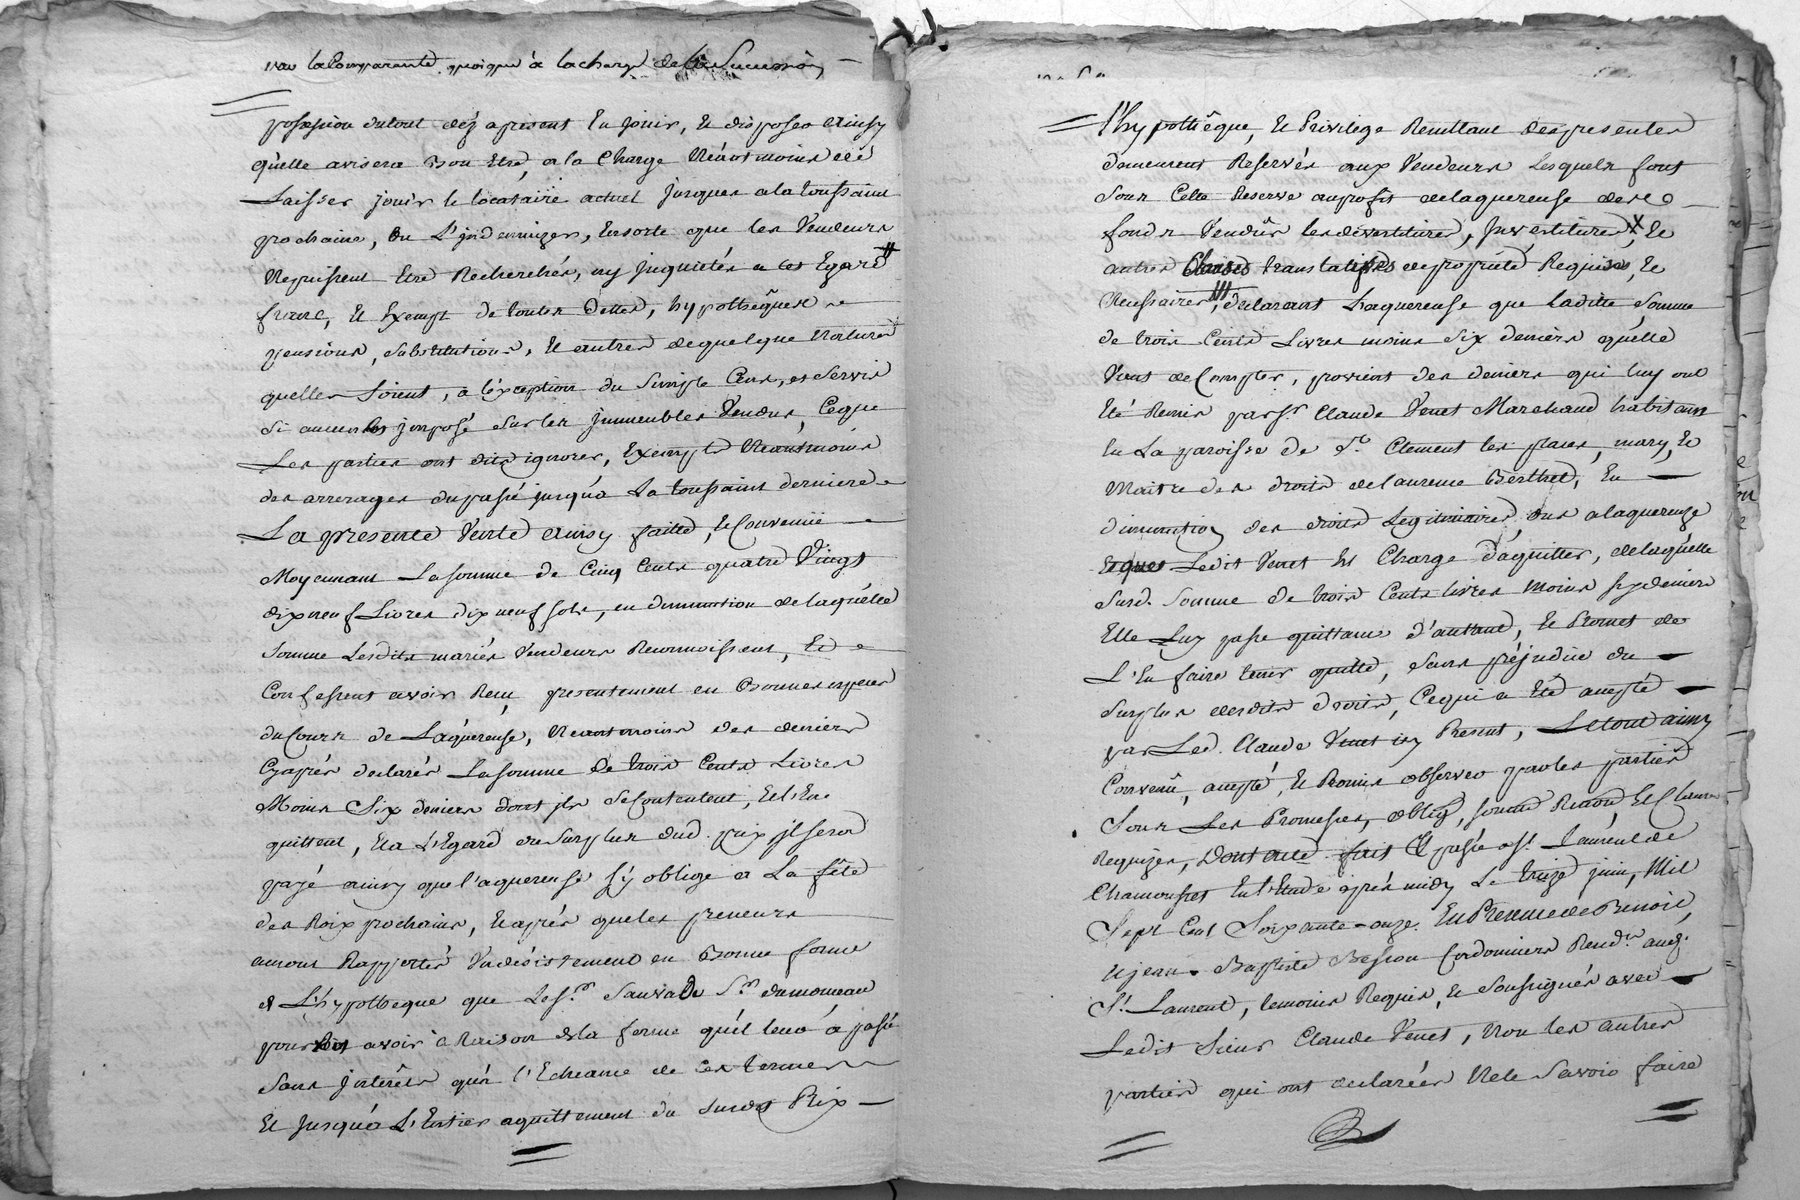 la Comparante quoique à la charge de la Succession
possession du tout déz apresent En jouir, Et disposer Ainsy
qu'elle avisera Bon Etre, a la Charge Néantmoins de
Laisser jouir le locataire actuel jusques a la toussaint
prochaine, ou L'jndemnizer, Ensorte que les Vendeurs
Nepuissent Etre Recherchés, ny jnquietés a cet Egard
franc, Et Exempt de toutes dettes, hypothêques
pensions, substitutions, Et autres de quelque Nature
quelles soient, a l'éxception du Simple Cens, et Servis
Si aucun est jmposé sur les jmmeubles Vendus, Ceque
Les parties ont dit ignorer, Exempts Néantmoins
des arrerages du passé jusqu'à La toussaint derniere
La presente Vente Ainsy faitte, Et Convenüe
Moyennant La somme de Cinq Cents quatre Vingt
dix neuf Livres dix neuf sols, en diminution de laquelle
Somme Lesdits mariés Vendeurs Reconnoissent, Et
Confessent avoir Reçu, presentement en Bonnes especes
du Cours de L'aquéreuse, Néantmoins des deniers
Cyaprès declarés La somme de trois Cents Livres
Moins Six deniers dont jls se Contentent, Et L'En
quittent, Et a L'Egard du Surplus dud. prix jl sera
payé ainsy que l'aquereuse s'y oblige a La fête
des Roix prochains, Et après que les preneurs
auront Rapportés Un désistement en Bonne forme
et L'hypotheque que Le Sr. Sauvade Sr. dumonceau
pourroit avoir à Raison de la ferme qu'il leur a passé
Sans jnterêts qu'à l'Echeance de ces termes
Et jusqu'à L'Entier aquittement du susdit Prix
l'hypothêque, Et Privilege Resultant des presentes
demeurent Reservés aux Vendeurs Lesquels font
Sous Cette Reserve au profit de laquereuse desd.
fonds Vendûs les devestitures, jnvestitures X, Et
autres Clauses translatives de proprieté Requises, Et
Necessaires, declarant Laquereuse que ladite Somme
de trois Cents Livres moins Six deniers qu'elle
Vient de Compter, provient des deniers qui luy ont
Eté Remis par Sr. Claude Venet Marchand habitant
En La paroisse de St. Clement les places, mary, Et
Maitre des droits de laurence Berthet, En
diminution des droits Legitimaires dus a laquereuse
Ledit Venet Est Chargé d'aquitter, de laquelle
Susd. Somme de trois Cents livres Moins six deniers
Elle Luy passe quittance d'autant, Et Promet de
L'En faire tenir quitte, Sans préjudice du
Surplus desdits droits, Cequi a Eté accepté
par Led. Claude Venet icy Present, Le tout ainsy
Convenû, accepté, Et Promis observer par les parties
Sous Les Promesses, oblig, soumd Renon, Et Clauses
Requizes, Dont acte fait Et passé a St. Laurent de
Chamousset En L'Etude après midy Le treize juin, Mil
Sept Cent Soixante-onze. En Presence de Benoit,
Et jean-Baptiste Besson Cordonniers Resid.ts aud.
St. Laurent, temoins Requis, Et Soussignés avec
Ledit Sieur Claude Venet, Non les autres
parties qui ont declarées Nele Savoir faire